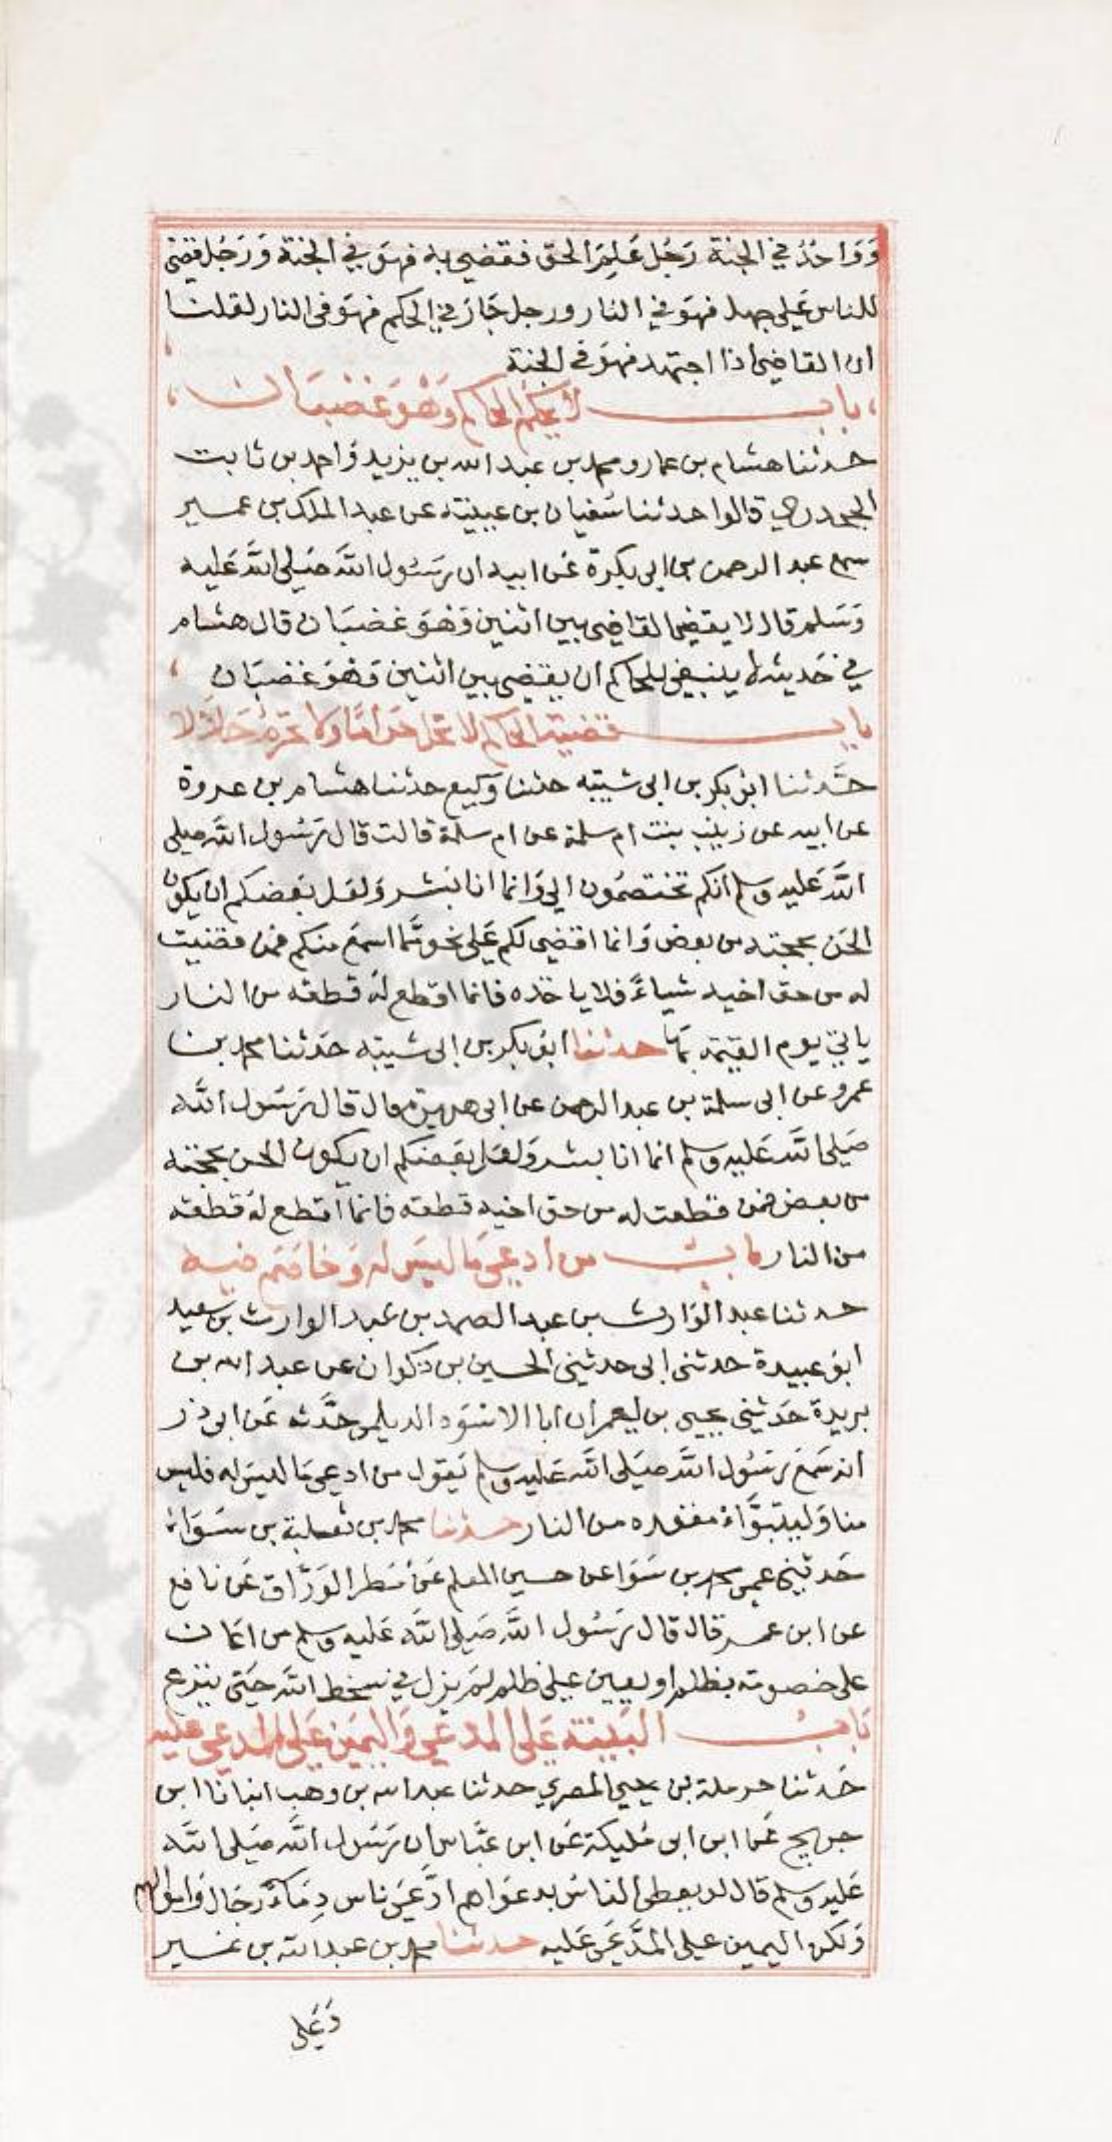 وَوَاحِدُ في الجنة رَجُل عَلِمَ الحق فقضي به فهوَ في الجنة وَرَجُل قضى
للناس عَلى جهل فهوَ في النار ورجل جَارَ في الحكم فهوَ فى النار لقلنا
ان القاضي اذا اجتهد فهوَ في الجنة
باب لا يحكم الحاكم وَهُوَ غضبَان
حدثنا هشام بن عمار ومحمد بن عبد الله بن يزيد وَاحمد بن ثابت
الجحدري قالوا حدثنا سُفيان بن عيينة عن عبد الملك بن عمير
سمع عبد الرحمن بن ابى بكرة عَن ابيه ان رَسُول اللَّه صَلى اللَّه عَليه
وَسَلم قال لا يقضي القاضى بين اثنين وَهوَ غضبَان قال هشام
في حَديثه لا ينبغي للحاكم ان يقضي بين اثنين وَهوَ غضبَان
باب قضية الحاكم لا تحل حَرامًا وَلا تحرّمُ حَلالا
حدَّثنا ابوُ بكر بن ابى شيبه حدثنا وَكيع حدثنا هشام بن عروة
عن ابيه عن زينب بنت ام سلمة عن ام سلمة قالت قال رَسُول اللَّه صلى
اللَّه عَليه وسلم انكم تختصمُون الي وَانما انا بَشر وَلعَل بَعضكم ان يكون
الحَن بحجته من بعض وَانما اقضي لكم عَلى نحو ممَّا اسمَع منكم فمن قضيت
له من حق اخيه شياءً فلا ياخذه فانما اقطع لهُ قطعه من النار
ياتي يوم القيمة بهَا حدثنا ابوُ بكر بن ابى شيبه حَدثنا محمد بن
عمرو عن ابى سلمة بن عبد الرحمن عن ابى هريرة قال قال رَسُول اللَّه
صَلى اللَّه عَليه وسلم انما انا بشر وَلعَل بَعضكم ان يكون الحن بحجته
من بعض فمن قطعت له من حق اخيه قطعه فانما أقطع لهُ قطعه
من النار بابُ من ادعىَ مَا ليسَ له وَخاصَم فيه
حدثنا عبد الوَارث بن عبد الصمد بن عَبد الوارث بن سعيد
ابوُ عبيدة حدثنى ابى حدثني الحسين بن ذكوان عن عبد الله بن
بريدة حَدثني يحيى بن يعمر ان ابا الاسْوَد الديلمي حدَّثه عَن ابى ذر
انه سَمعَ رَسُول اللَّه صَلى اللَّه عَليه وسلم يَقول من ادعى مَا ليسَ له فليس
منا وَليتبوَّاءْ مقعده من النار حدثنا محمد بن ثعلبة بن سَوَاء
حَدثني عمى محمد بن سَوَا عن حسين المعلم عَن مَطر الوَرَّاق عَن نافع
عن ابن عمر قال قال رَسُول اللَّه صَلى اللَّه عَليه وسلم من اعَان
على خصومة بظلم او يعين عَلى ظلم لم يَزل في سَخط اللَّه حَتى ينزع
بَابُ البَينة عَلى المدعي وَاليمَين عَلى المدعى عليه
حَدثنا حرملة بن يحيى المصري حدثنا عبد الله بن وهب انبانا ابن
جريج عَن ابن ابى مُليكة عَن ابن عبَّاس ان رَسُول اللَّه صَلى اللَّه
عَليه وسلم قال لو يعطى الناسُ بدعوَاهم ادَّعىَ ناس دِمَاءَ رجَال وَاموَالهم
وَلكن اليمين على المدَّعَى عَليه حدثنا محمد بن عبد الله بن نمير
وَعَلي